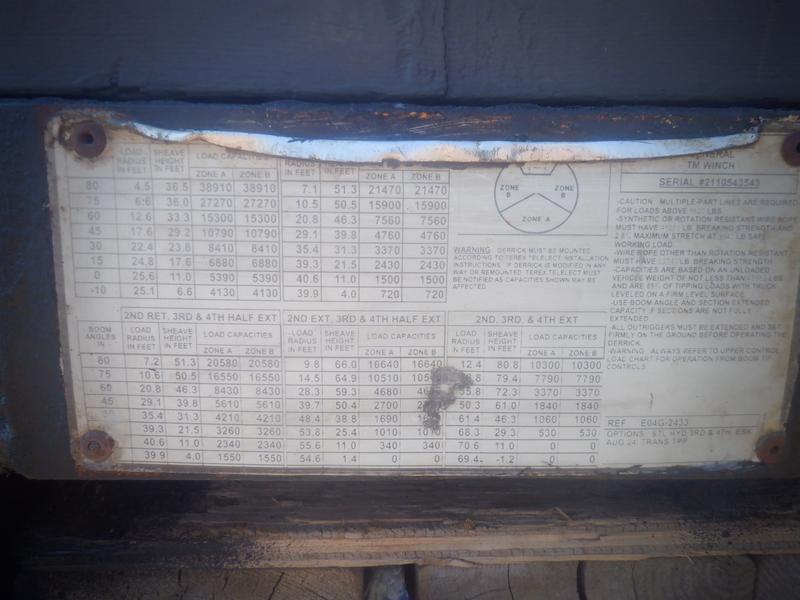 LOAD RADIUS IN FEET SHEAVE HEIGHT IN FEET LOAD CAPACITIES RADIUS IN FEET IN FEET
ZONE A ZONE B ZONE A ZONE B
80 4.5 36.5 38910 38910 7.1 51.3 21470 21470
75 6.6 36.0 27270 27270 10.5 50.5 15900 15900
60 12.6 33.3 15300 15300 20.8 46.3 7560 7560
45 17.6 29.2 10790 10790 29.1 39.8 4760 4760
30 22.4 23.8 8410 8410 35.4 31.3 3370 3370
15 24.8 17.6 6880 6880 39.3 21.5 2430 2430
0 25.6 11.0 5390 5390 40.6 11.0 1500 1500
-10 25.1 6.6 4130 4130 39.9 4.0 720 720
ZONE B ZONE B
ZONE A
WARNING: DERRICK MUST BE MOUNTED
ACCORDING TO TEREX TELELECT INSTALLATION
INSTRUCTIONS. IF DERRICK IS MODIFIED IN ANY
WAY OR REMOUNTED, TEREX TELELECT MUST
BE NOTIFIED AS CAPACITIES SHOWN MAY BE
AFFECTED.
2ND RET. 3RD & 4TH HALF EXT 2ND EXT, 3RD & 4TH HALF EXT 2ND, 3RD, & 4TH EXT
BOOM ANGLES IN LOAD RADIUS IN FEET SHEAVE HEIGHT IN FEET LOAD CAPACITIES LOAD RADIUS IN FEET SHEAVE HEIGHT IN FEET LOAD CAPACITIES LOAD RADIUS IN FEET SHEAVE HEIGHT IN FEET LOAD CAPACITIES
ZONE A ZONE B ZONE A ZONE B ZONE A ZONE B
80 7.2 51.3 20580 20580 9.8 66.0 16640 16640 12.4 80.8 10300 10300
75 10.6 50.5 16550 16550 14.5 64.9 10510 79.4 7790 7790
60 20.8 46.3 8430 8430 28.3 59.3 4680 72.3 3370 3370
45 29.1 39.8 5610 5610 39.7 50.4 2700 50.3 61.0 1840 1840
35.4 31.3 4210 4210 48.4 38.8 1690 61.4 46.3 1060 1060
39.3 21.5 3260 3260 53.8 25.4 1010 1010 68.3 29.3 530 530
40.6 11.0 2340 2340 55.6 11.0 340 340 70.6 11.0 0 0
39.9 4.0 1550 1550 54.6 1.4 0 0 69.4 -1.2 0 0
TM WINCH
SERIAL #2110543543
-CAUTION: MULTIPLE-PART LINES ARE REQUIRED
FOR LOADS ABOVE LBS.
-SYNTHETIC OR ROTATION RESISTANT WIRE ROPE
MUST HAVE LB. BREAKING STRENGTH AND
MAXIMUM STRETCH AT LB SAFE
WORKING LOAD.
-WIRE ROPE OTHER THAN ROTATION RESISTANT
MUST HAVE LB. BREAKING STRENGTH
-CAPACITIES ARE BASED ON AN UNLOADED
VEHICLE WEIGHT OF NOT LESS THAN LBS
AND ARE 85% OF TIPPING LOADS WITH TRUCK
LEVELED ON A FIRM LEVEL SURFACE.
-USE BOOM ANGLE AND SECTION EXTENDED
CAPACITY IF SECTIONS ARE NOT FULLY
EXTENDED.
-ALL OUTRIGGERS MUST BE EXTENDED AND SET
FIRMLY ON THE GROUND BEFORE OPERATING THE
DERRICK.
-WARNING: ALWAYS REFER TO UPPER CONTROL
LOAD CHART FOR OPERATION FROM BOOM TIP
CONTROLS.
REF E04G-2433
OPTIONS: STL HYD 3RD & 4TH, ESK
AUG 24, TRANS TPP